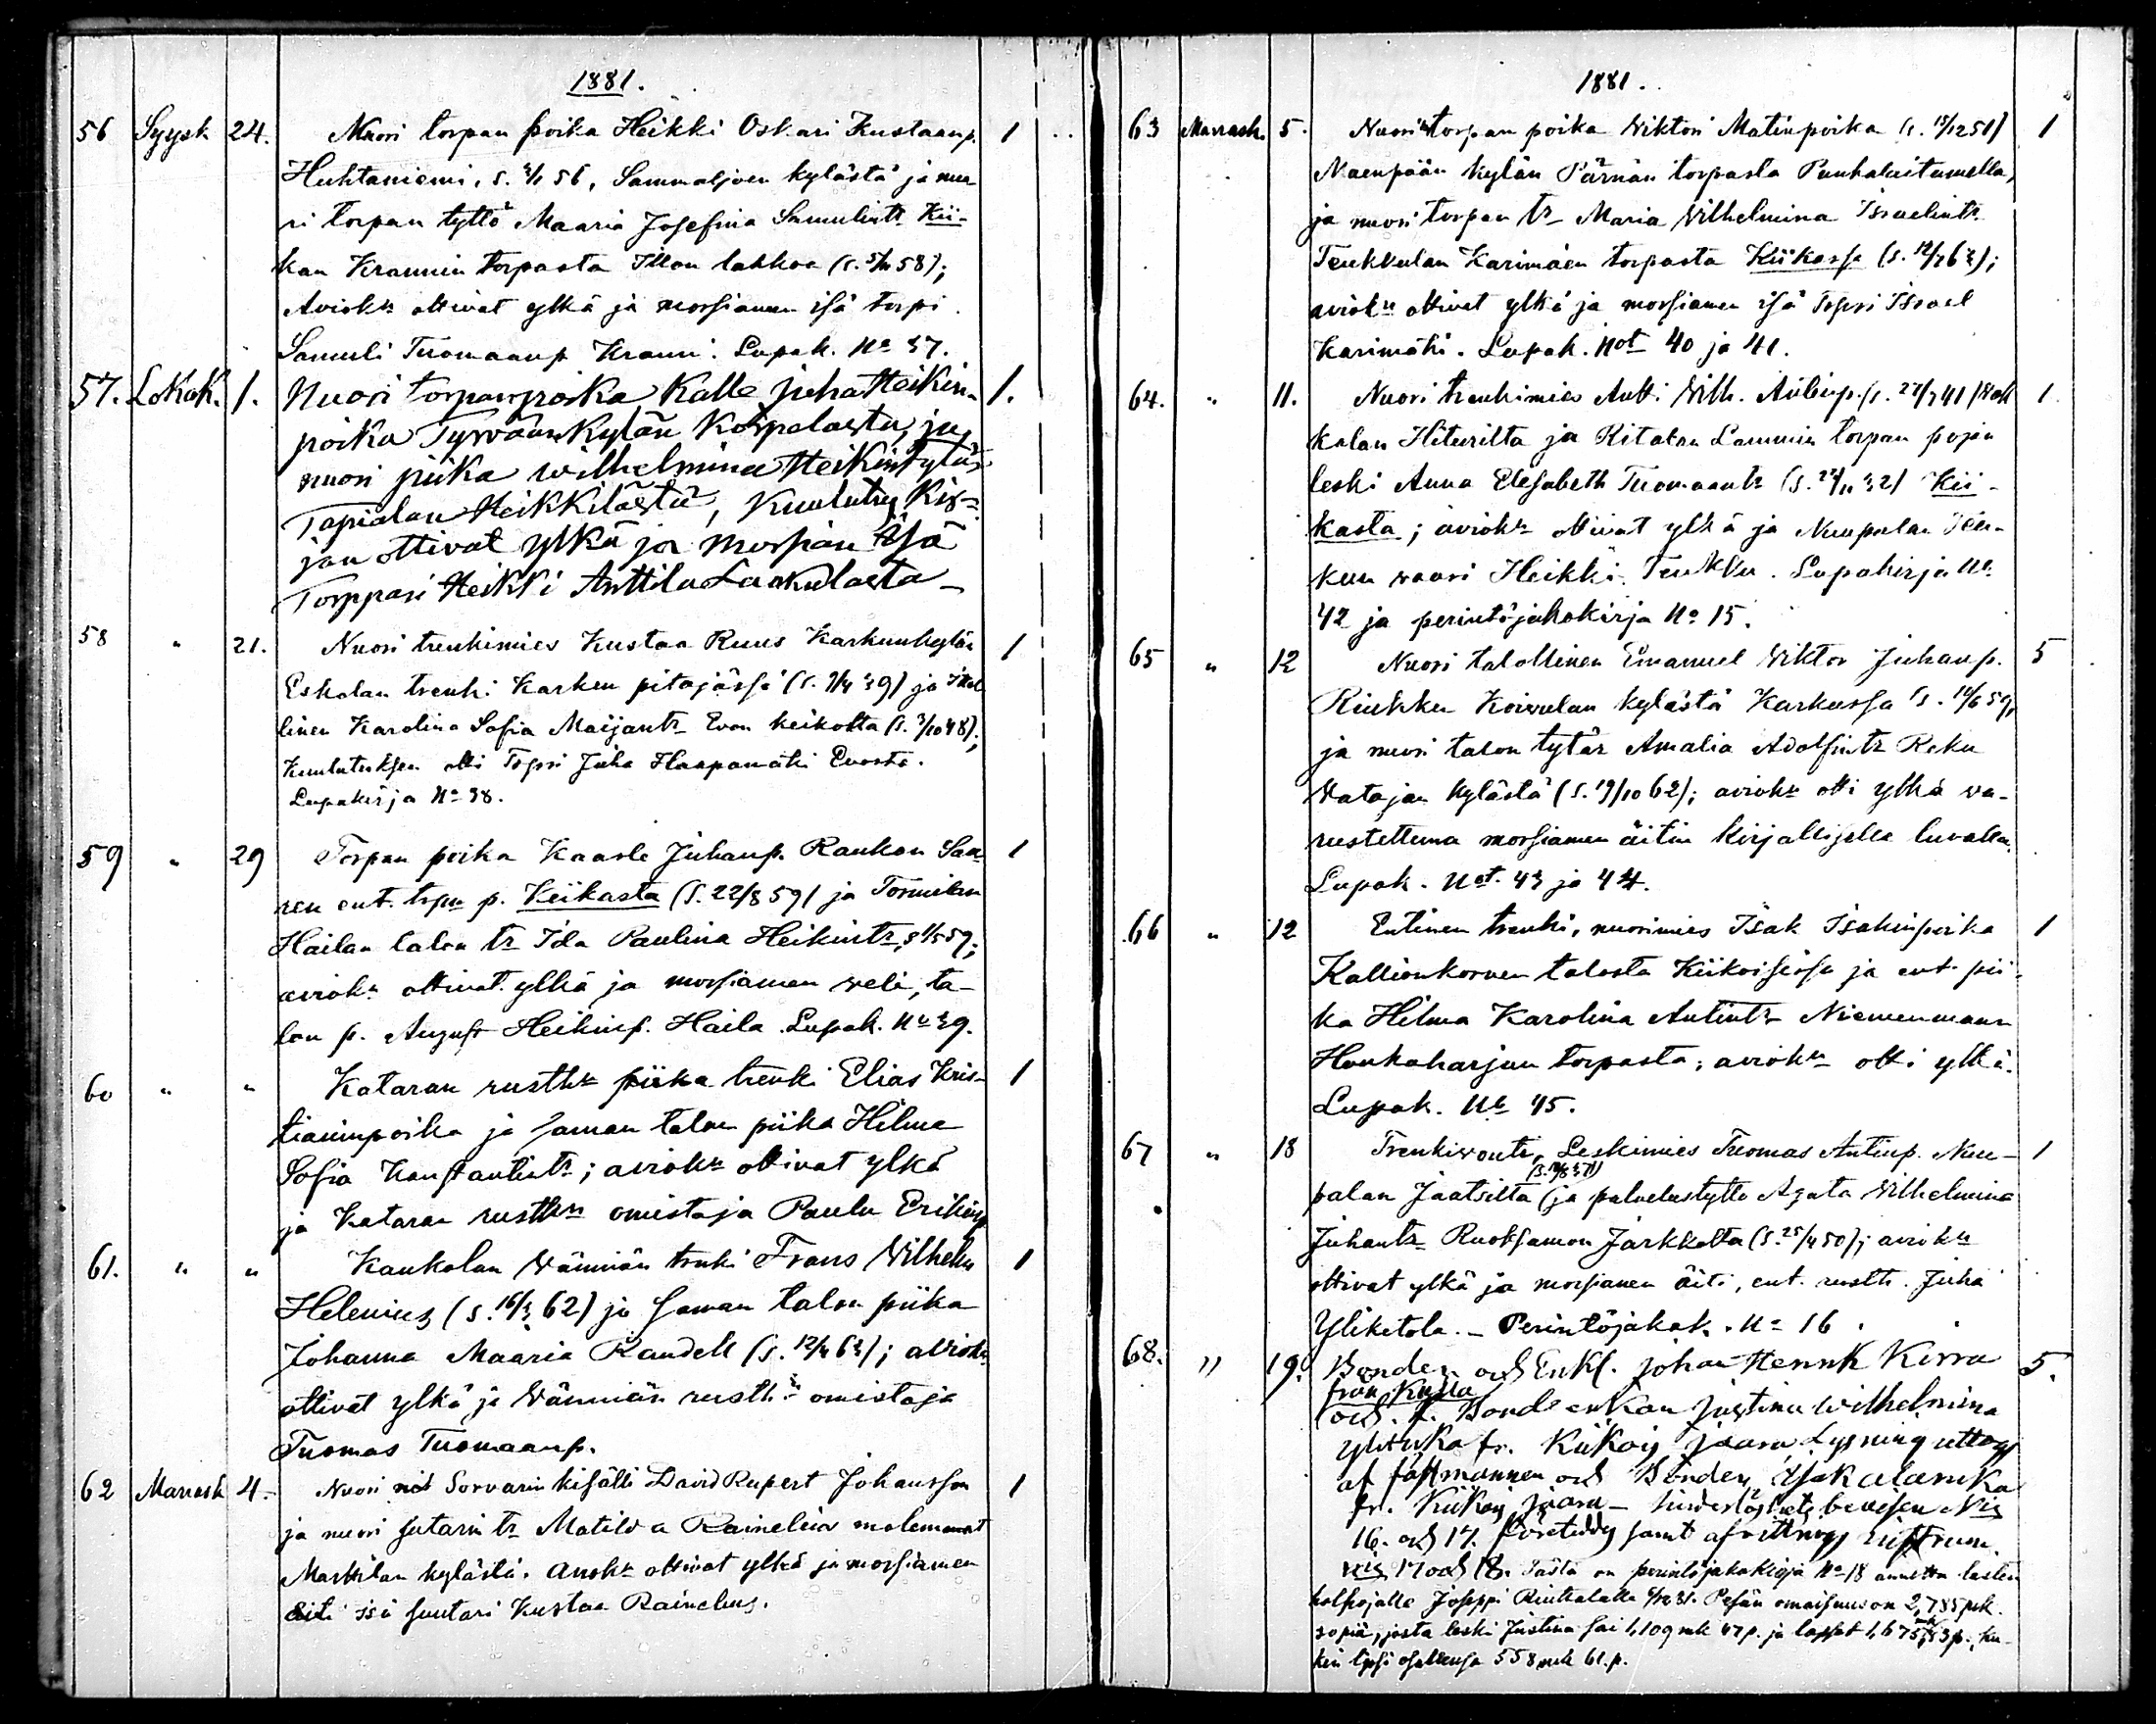 1881.
56 Syysk 24. Nuori torpan poika Heikki Oskari Kustaanp. 1
Huhtaniemi, s. 3/1 56, Sammaljoen kylästä ja nuo-
ri torpan tyttö Maaria Josefina Samulintr Kii-
kan Krannin torpasta Illon lahkoa (s. 58);
Aviok:n ottivat ylkä ja morsiamen isä torpi.
Samuli Tuomaanp Kranni. Lupak. No 37.
57. Lokak. 1. Nuori torparpoika Kalle juha Heikin- 1.
poika Tyrväänkylän Korpelasta, ja
nuori piika wilhelmina Heikintytär
Tapialan Heikkilästä, Kuulutus Kir-
jan ottivat ylkä ja morsian isä
Torppari Heikki Anttila Laukulasta
58 " 21. Nuori trenkimies Kustaa Ruus Karkunkylän 1
Eskolan trenki Karkun pitäjässä (s. 9/4 39) ja Itsel
linen Karolina Sofia Maijantr Evon keikolta (s. 3/10 48);
Kuulutuksen otti Torpri Juha Haapamäki Evosta.
Lupakirja No 38.
59 " 29 Torpan poika Kaarle Juhanp. Raukon Saa- 1
ren ent. trpn p. Kiikasta (s. 22/8 59) ja Tormilan
Hailan talon tr Ida Paulina Heikintr, s 1/5 59;
aviok:n ottivat ylkä ja morsiamen veli, ta-
lon p. August Heikinp. Haila. Lupak. No 39.
60 " " Kataran rusth:n piika trenki Elias Kris- 1
tianinpoika ja saman talon piika Hilma
Sofia Konstantintr; aviok:n ottivat ylkä
ja Kataran rusth:n omistaja Paulu Erikinp
61. " " Kaukolan Wänniän trnki Frans Vilhelm 1
Helenius (s. 16/3 62) ja saman talon piika
Johanna Maaria Randell (s. 12/4 63); aviok:n
ottivat ylkä ja Wänniän rusth:n omistaja
Tuomas Tuomaanp.
62 Marrask 4. Nuori Sorvarin kisälli David Rupert Johansson 1
ja nuori sutarin tr Matilda Rainelius molemmat
Marttilan kylästä. aviok:n ottivat ylkä ja morsiamen
isä suutari Kustaa Rainelius.
1881.
63 Marrask. 5. Nuori torpan poika Viktori Matinpoika (s. 15/12 51) 1
Maenpään kylän Pärnän torpasta Punkalaitumella,
ja nuori torpan tr Maria Vilhelmina Israelintr
Teukkulan Karimäen torpasta Kiikassa (s. 63);
aviok:n ottivat ylkä ja morsiamen isä Torpri Israel
Karimäki. Lupak. Not 40 ja 41.
64. " 11. Nuori trenkimies Antti Vilh. (s. 27/7 41) 1
kalan Hiturilta ja Kitalan Lammin torpan pojan
leski Anna Elesabeth Tuomaantr (s. 32) Kii-
kasta; aviok:n ottivat ylkä ja Nuupalan Teu-
kun waari Heikki Teukku. Lupakirja No
42 ja perintöjakokirja No 15.
65 " 12 Nuori talollinen Emanuel Viktor Juhanp. 5
Riukku Koivulan kylästä Karkussa (s. 14/6 59,
ja nuori talon tytär Amalia Adolfintr Reku
Watajan kylästä (s. 19/10 62); aviok:n otti ylkä va-
rustettuna morsiamen äitin kirjallisella luvalla.
Lupak. Not. 43 ja 44.
66 " 12 Entinen trenki, nuorimies Isak Isakinpoika 1
Kallionkorven talosta Kiikoisissa ja ent. pii-
ka Hilma Karolina Antintr Niemenmaan
Honkaharjun torpasta; aviok:n otti ylkä.
Lupak. No 45.
67 " 18 Trenkivouti, Leskimies Tuomas Antinp. Nuu- 1
palan Jaatsilta ja palvelustyttö Agata Vilhelmina
Juhantr Ruoksamon Jarkkolta (s. 25/4 50); aviok:n
ottivat ylkä ja morsiamen äiti, ent. rusth. Juha
Yliketola. - Perintöjakok. No 16.
68. " 19. Bonden och Enkl. johan Henrik Kirra 5.
från Kulla
och f. Bondeenkan justina wilhelmina
fr. Kiikois jaara Lysning uttogs
af fästmannen och Bonden Isak
fr. Kiikois jaara - hinderslöshets bevisen Nis
16. och 17. företeddes samt afvittrings
17 och 18. Tästä on perintöjakokirja No 18 annettu lasten
holhojalle Joseppi Riuttalalle. Pesän omaisuus on 2,785 mk.
30 piä, josta leski Justina sai 1,109 mk 47 p. ja lapset 1,675 mk 83 p., ku-
kin lapsi osallensa 558 mk 61. p.